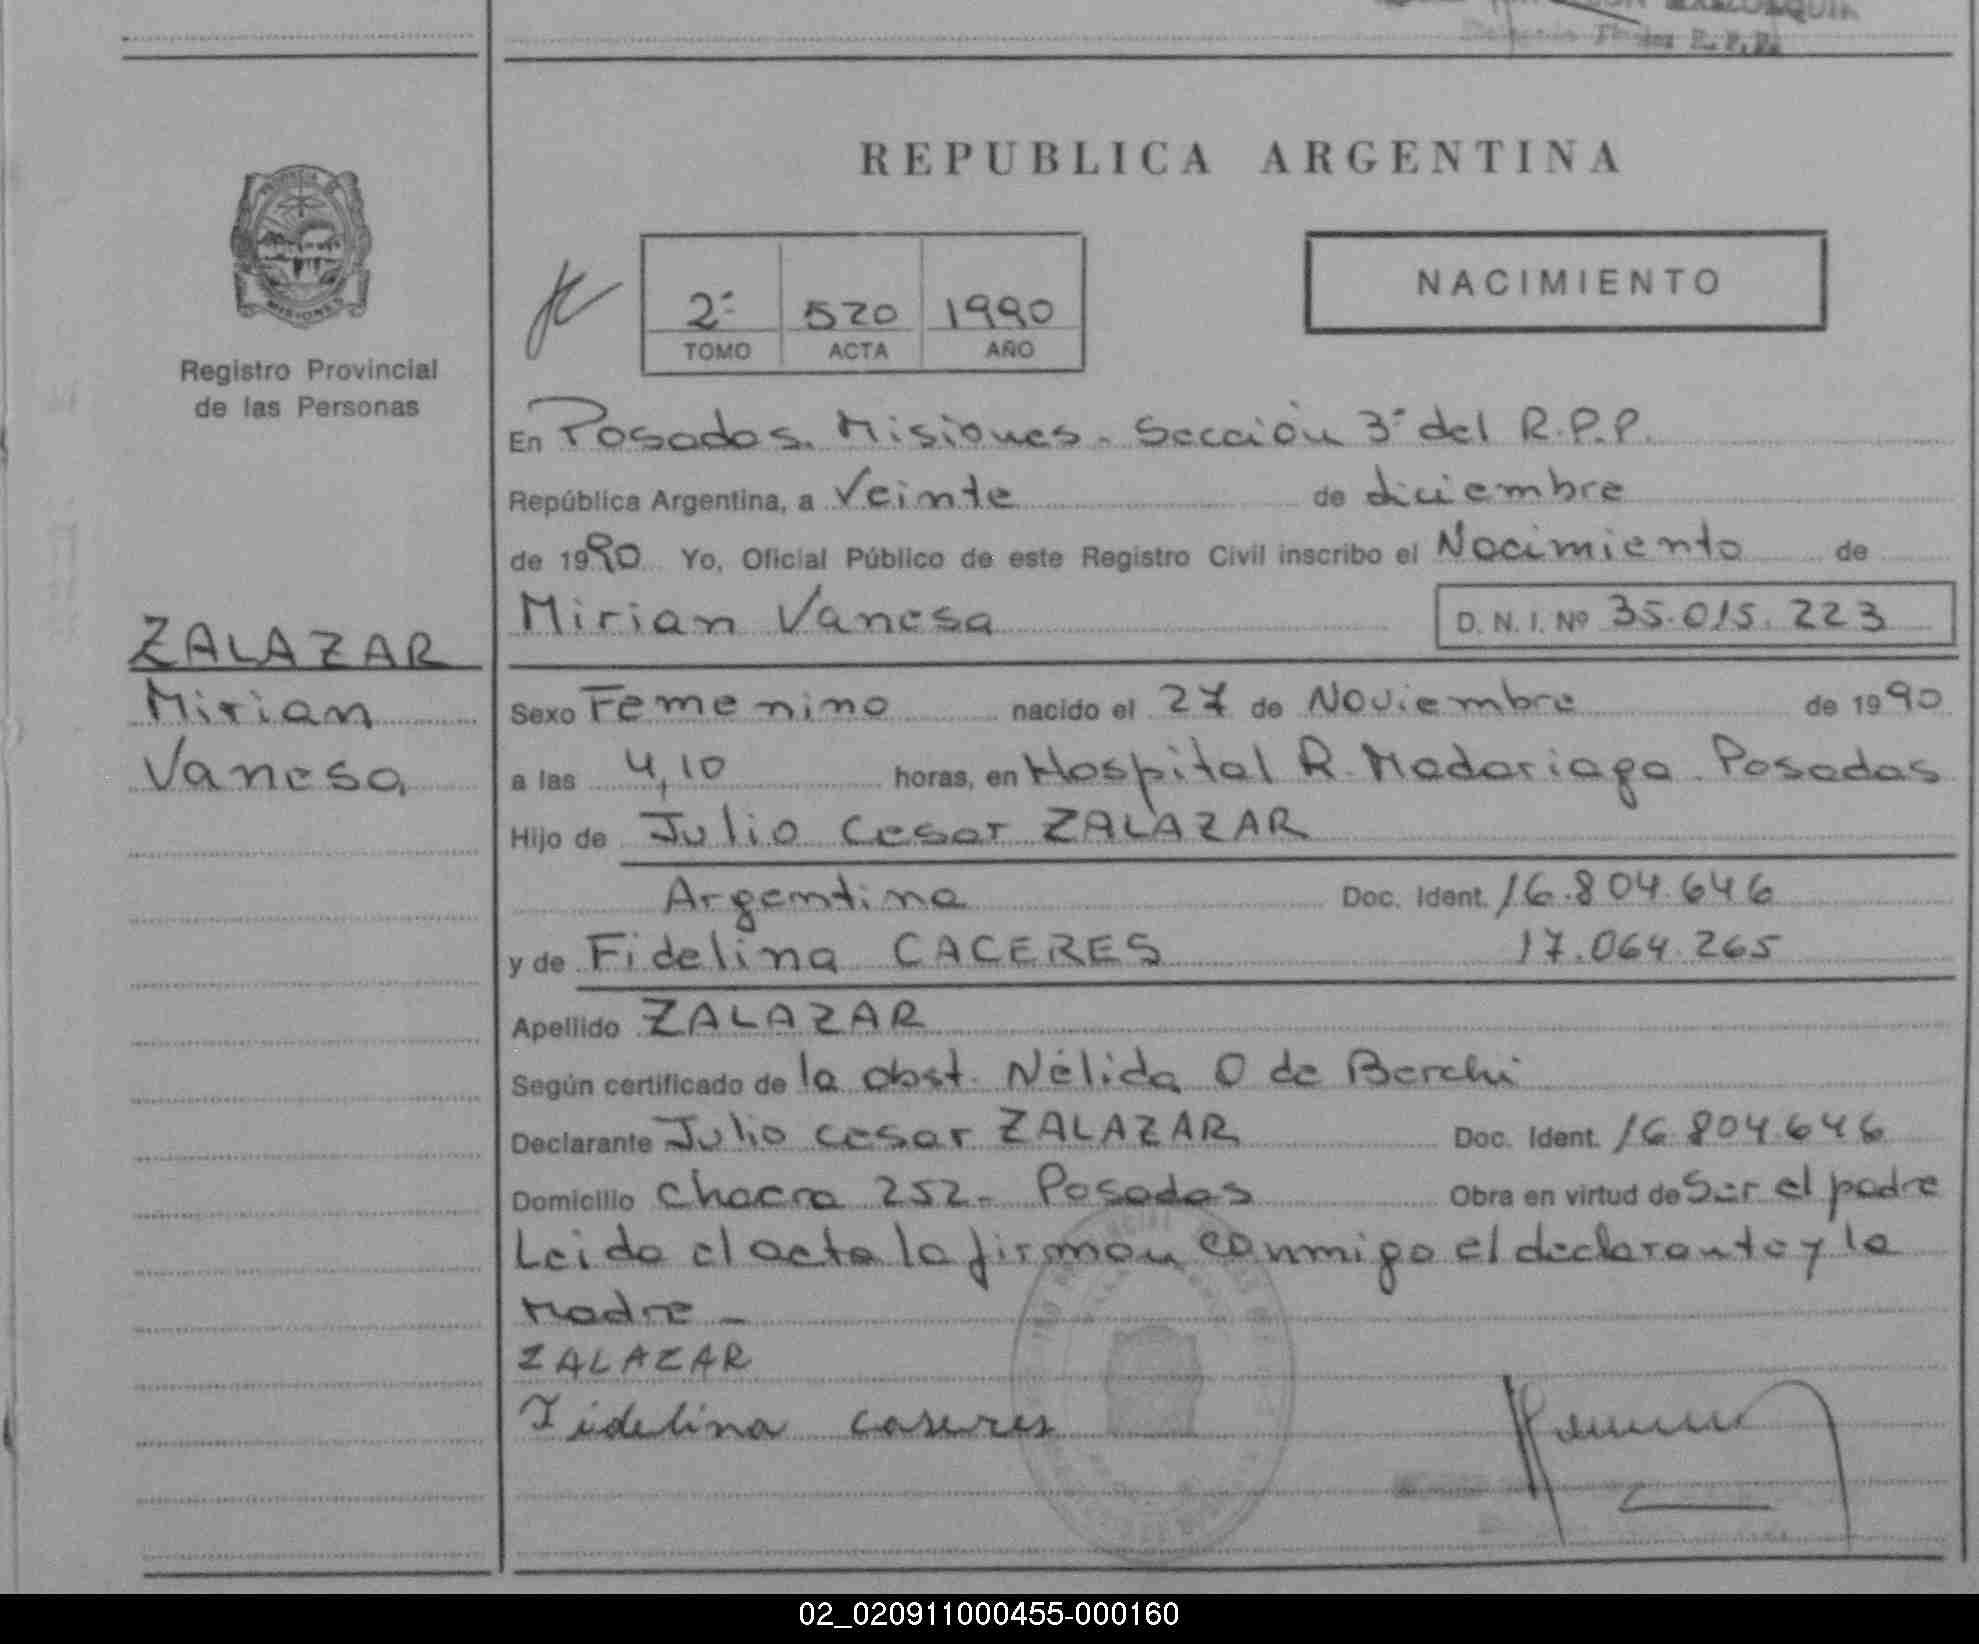 REPUBLICA ARGENTINA
2º 520 1990
TOMO ACTA AÑO
NACIMIENTO
Registro Provincial
de las Personas
En Posadas. Misiones. Sección 3º del R.P.P.
República Argentina, a Veinte de diciembre
de 1990 Yo, Oficial Público de este Registro Civil inscribo el Nacimiento de
Mirian Vanesa D. N. I. Nº 35.015.223
ZALAZAR
Mirian
Vanesa
Sexo Femenino nacido el 27 de Noviembre de 1990
a las 4,10 horas, en Hospital R. Madariaga. Posadas
Hijo de Julio Cesar ZALAZAR
Argentina Doc. Ident. 16.804.646
y de Fidelina CACERES 17.064.265
Apellido ZALAZAR
Según certificado de la obst. Nélida O de Berchi
Declarante Julio cesar ZALAZAR Doc. Ident. 16.804.646
Domicilio chacra 252. Posadas Obra en virtud de Ser el padre
Leida el acta la firman conmigo el declarante y la
Madre _
ZALAZAR
Fidelina caseres
02_020911000455-000160